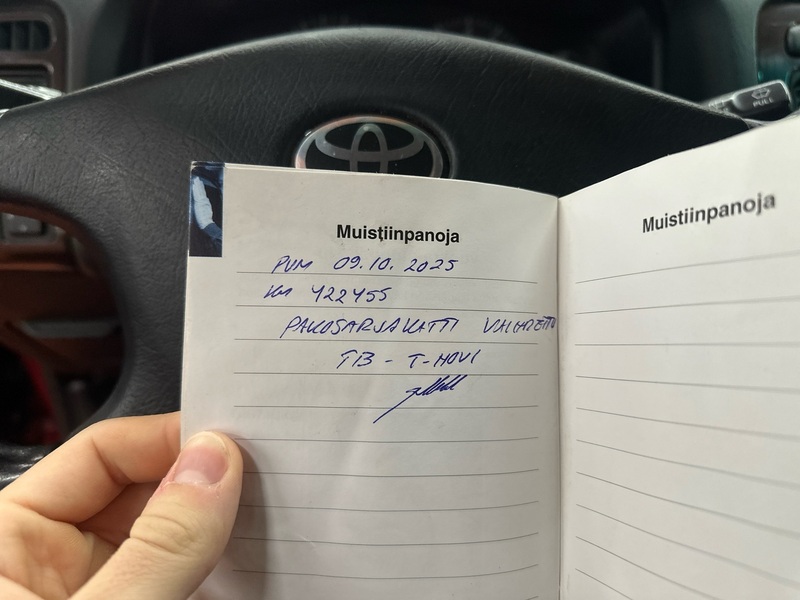 Muistiinpanoja
PVM 09.10.2025
KM 422455
PAKOSARJAKATTI VAIHDETTU
TB - T-HOVI
Muistiinpanoja
PULL